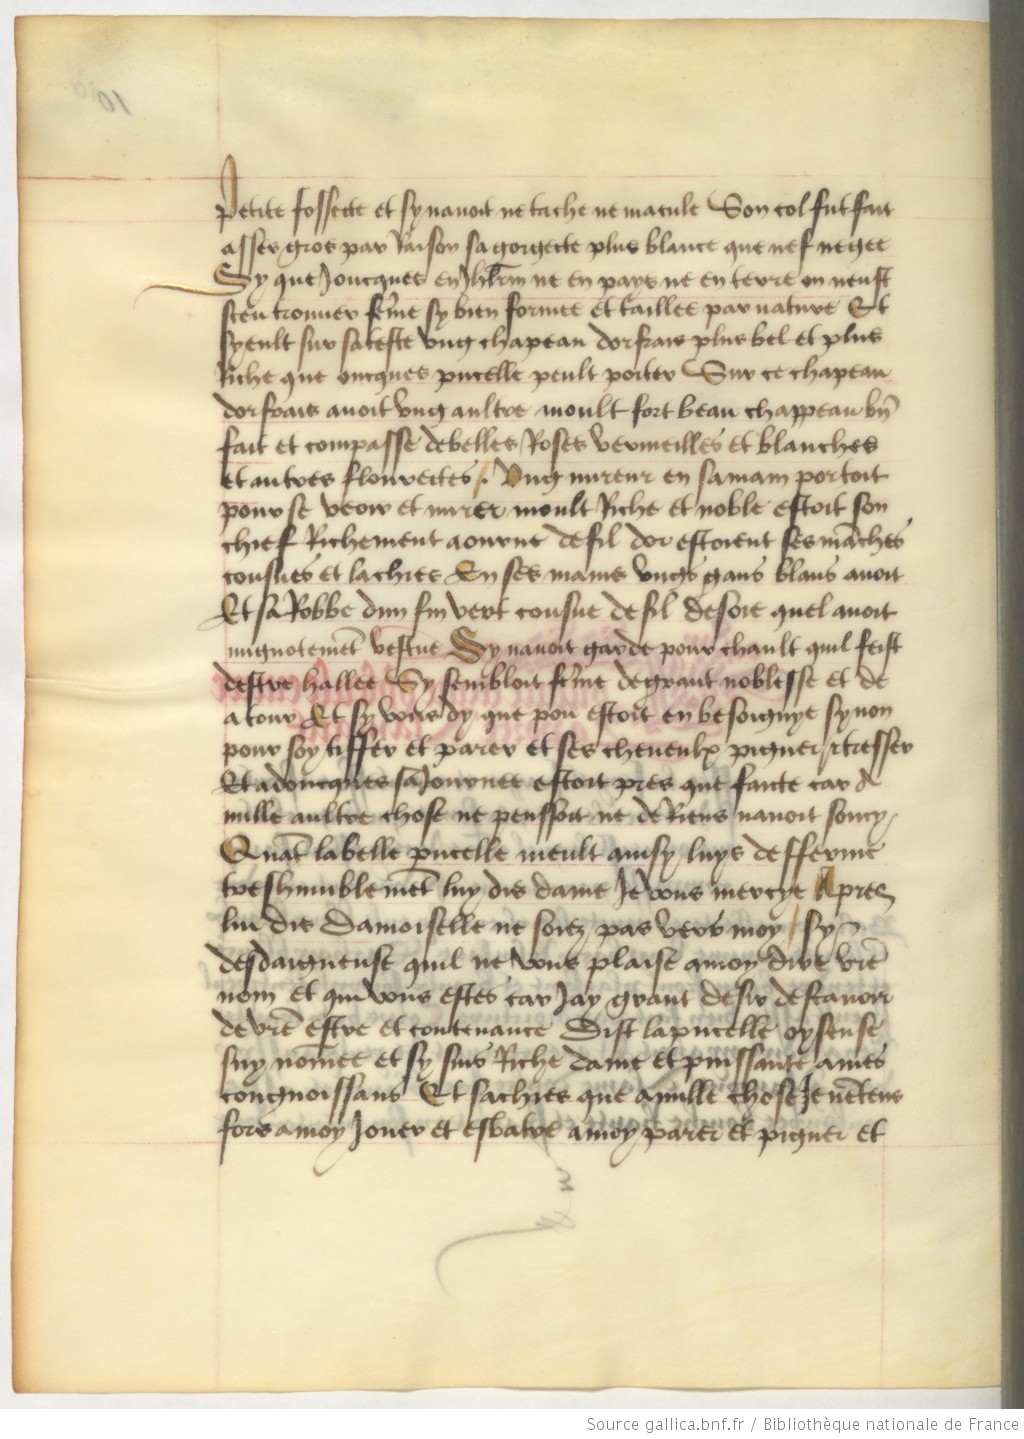 Petite fossecte et sy navoit ne tache ne macule Son col fut fait
asses gros par Raison sa gorgecte plus blance que nef negee
Sy que Joucques en Jhrlm ne en pays ne en terre on neust
sceu trouver fēme sy bien formee et taillee par nature Et
sy eult sur sa teste ung chapeau dorfrais plus bel et plus
Riche que oncques pucelle peult porter Sur ce chapeau
dorfrais avoit ung aultre moult fort beau chappeau bn̄
fait et compasse de belles Roses vermeilles et blanches
et autres flourectes. Ung mireur en sa main portoit
pour se veoir et mirer moult Riche et noble estoit son
chief Richement aourne de fil dor estoient ses māches
cousues et lachies En ses mains ungs gans blans avoit
Et sa Robbe dun fin vert cousue de fil de soie quel avoit
mignotemēt vestue Sy navoit garde pour chault quil feist
destre hallee Sy sembloit fēme de grant noblesse et de
atour Et sy vous dy que pou estoit en besoignye synon
pour soy tiffer et parer et ses cheveulx pigner et tresser
Et adoncques sa Journee estoit pres que faicte car de
nulle aultre chose ne penssoit ne de Riens navoit soucy
Quāt la belle pucelle meult ainsy luys defferme
treshumblemēt luy dis dame Je vous mercye Apres
lui dis Damoiselle ne soiez pas vers moy sy
desdaigneuse quil ne vous plaise a moy dire vr̄e
nom et qui vous estes car Jay grant desir de scavoir
de vr̄e estre et contenance Dist la pucelle oyseuse
suy nomee et sy suis Riche dame et puissante a mes
congnoissans Et sachies que a nulle chose Je nētens
fors a moy Jouer et esbatre a moy parer et pigner et
Source gallica.bnf.fr / Bibliothèque nationale de France